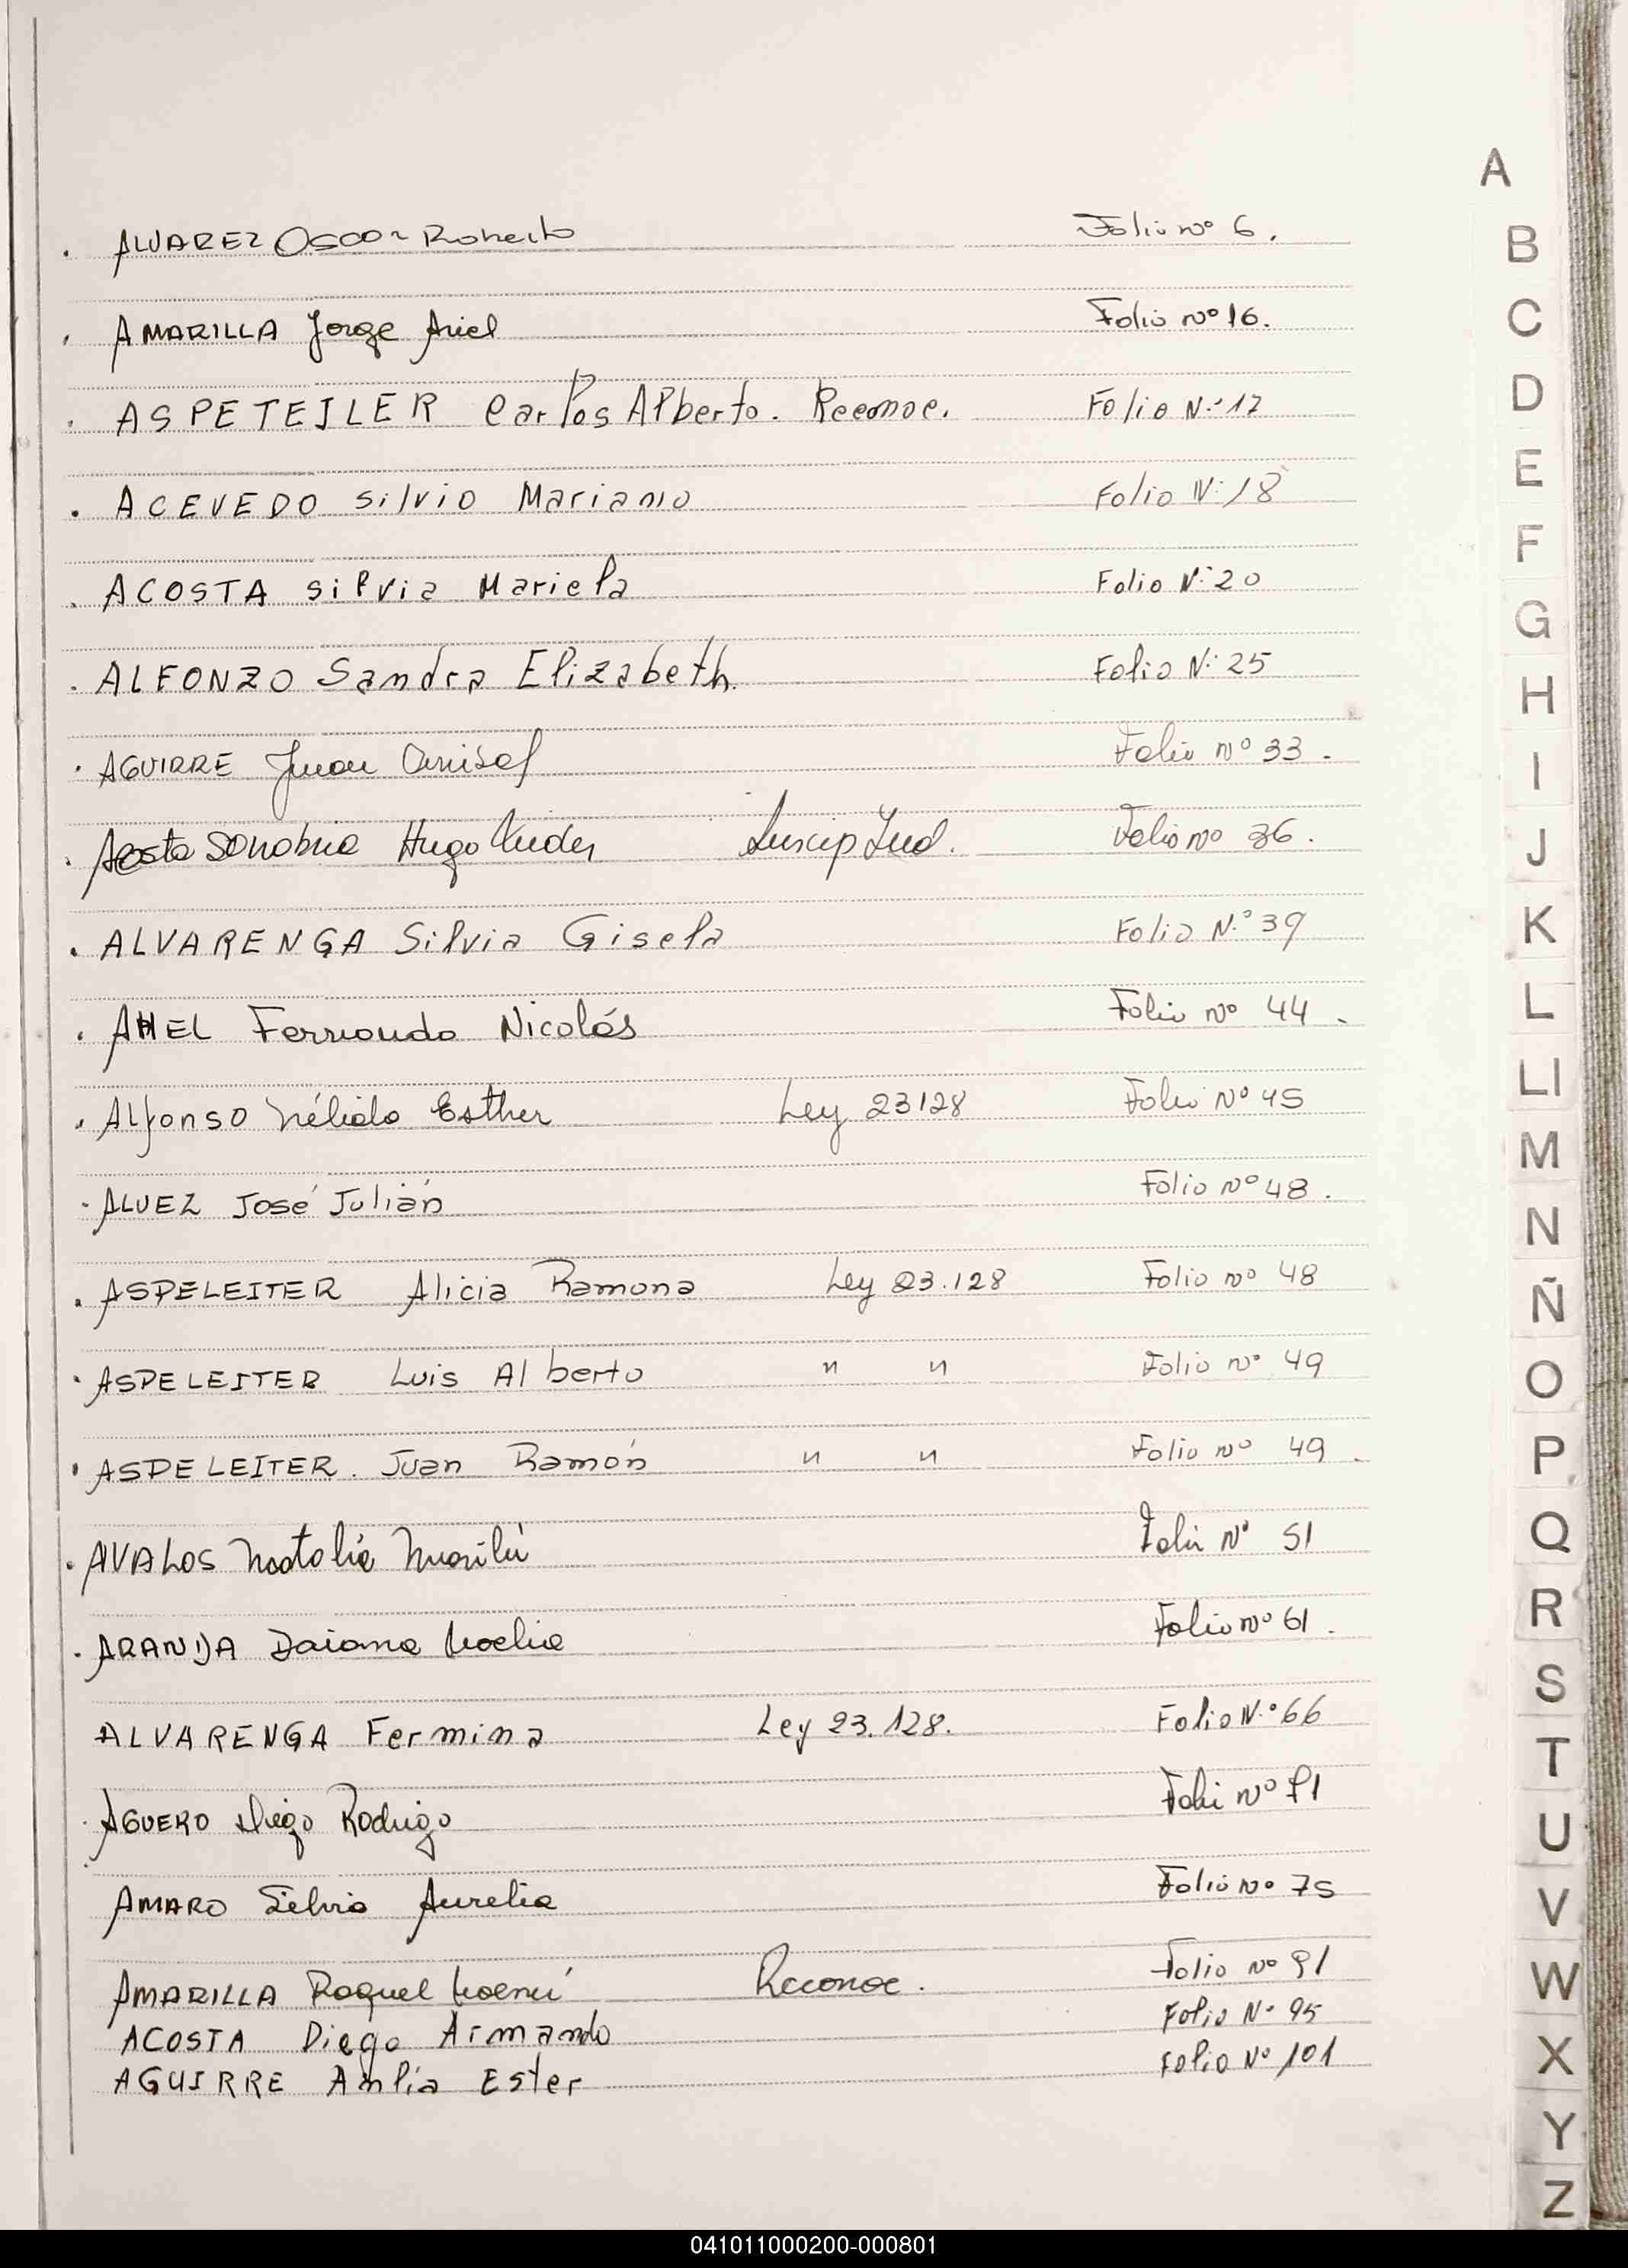 A
ALVAREZ Oscar Roberto Folio nº 6.
AMARILLA Jorge Ariel Folio nº 16.
ASPETEJLER Carlos Alberto. Reconoc. Folio N:º 17
ACEVEDO Silvio Mariano Folio N: 18
ACOSTA Silvia Mariela Folio N: 20
ALFONZO Sandra Elizabeth. Folio N: 25
AGUIRRE Juan Folio nº 33.
Acosta Sonabria Hugo Inscrip Jud. Folio nº 36.
ALVARENGA Silvia Gisela Folio N.º 39
AHEL Fernando Nicolás Folio nº 44.
Alfonso Nélida Esther Ley 23128 Folio Nº 45
ALVEZ José Julián Folio nº 48.
ASPELEITER Alicia Ramona Ley 23.128 Folio nº 48
ASPELEITER Luis Alberto " " Folio nº 49
ASPELEITER. Juan Ramón " " Folio nº 49
AVALOS Natalia Marilú Folio Nº 51
ARANDA Daiana Noelia Folio nº 61.
ALVARENGA Fermina Ley 23.128. Folio N.º 66
AGUERO Diego Rodrigo Folio nº 71
AMARO Silvia Aurelia Folio nº 75
AMARILLA Raquel Noemí Reconoc. Folio nº 91
ACOSTA Diego Armando Folio Nº 95
AGUIRRE Anlía Ester Folio Nº 101
B
C
D
E
F
G
H
I
J
K
L
Ll
M
N
Ñ
O
P
Q
R
S
T
U
V
W
X
Y
Z
041011000200-000801